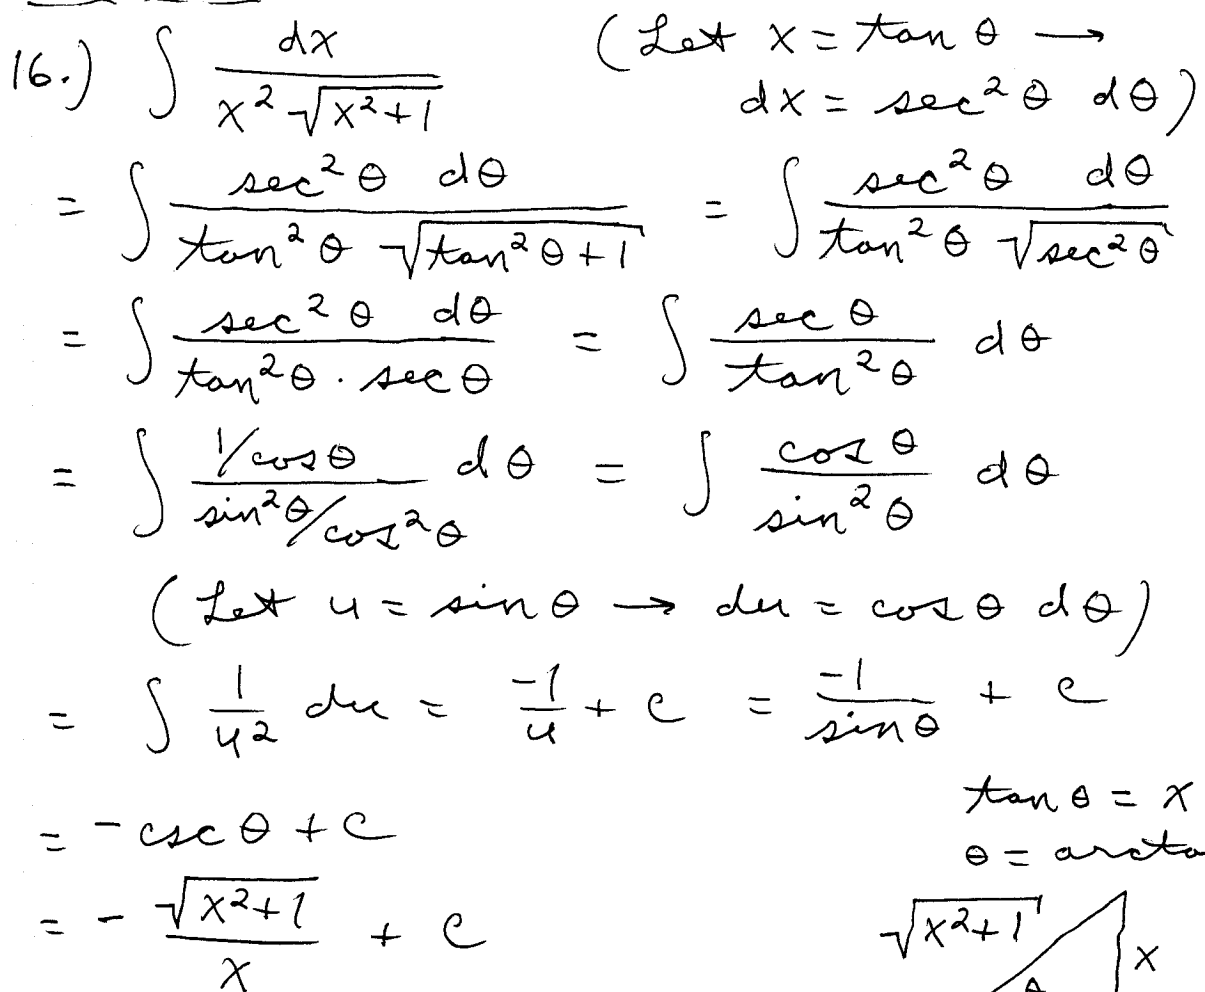 16.) ∫ dx / (x² √(x²+1)) (Let x = tan θ →
dx = sec² θ dθ)
= ∫ sec² θ dθ / (tan² θ √(tan² θ + 1)) = ∫ sec² θ dθ / (tan² θ √(sec² θ))
= ∫ sec² θ dθ / (tan² θ · sec θ) = ∫ (sec θ / tan² θ) dθ
= ∫ ((1/cos θ) / (sin² θ / cos² θ)) dθ = ∫ (cos θ / sin² θ) dθ
(Let u = sin θ → du = cos θ dθ)
= ∫ (1/u²) du = -1/u + c = -1/sin θ + c
tan θ = x
= - csc θ + c
θ =
= - √(x²+1) / x + c
√(x²+1)
x
θ